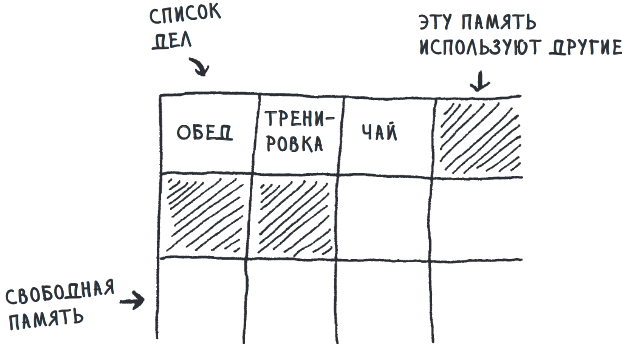 СПИСОК
ДЕЛ
ЭТУ ПАМЯТЬ
ИСПОЛЬЗУЮТ ДРУГИЕ
ОБЕД
ТРЕНИ-
РОВКА
ЧАЙ
СВОБОДНАЯ
ПАМЯТЬ